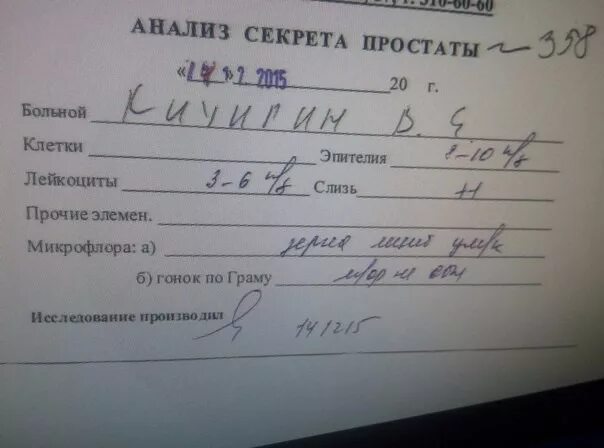 310-60-60
АНАЛИЗ СЕКРЕТА ПРОСТАТЫ ~ 358
2015 20 г.
Больной Кичигин В.
Клетки Эпителия 8-10
Лейкоциты 3-6 Слизь
Прочие элемен.
Микрофлора: а) зерна
б) гонок по Граму
Исследование производил 141215